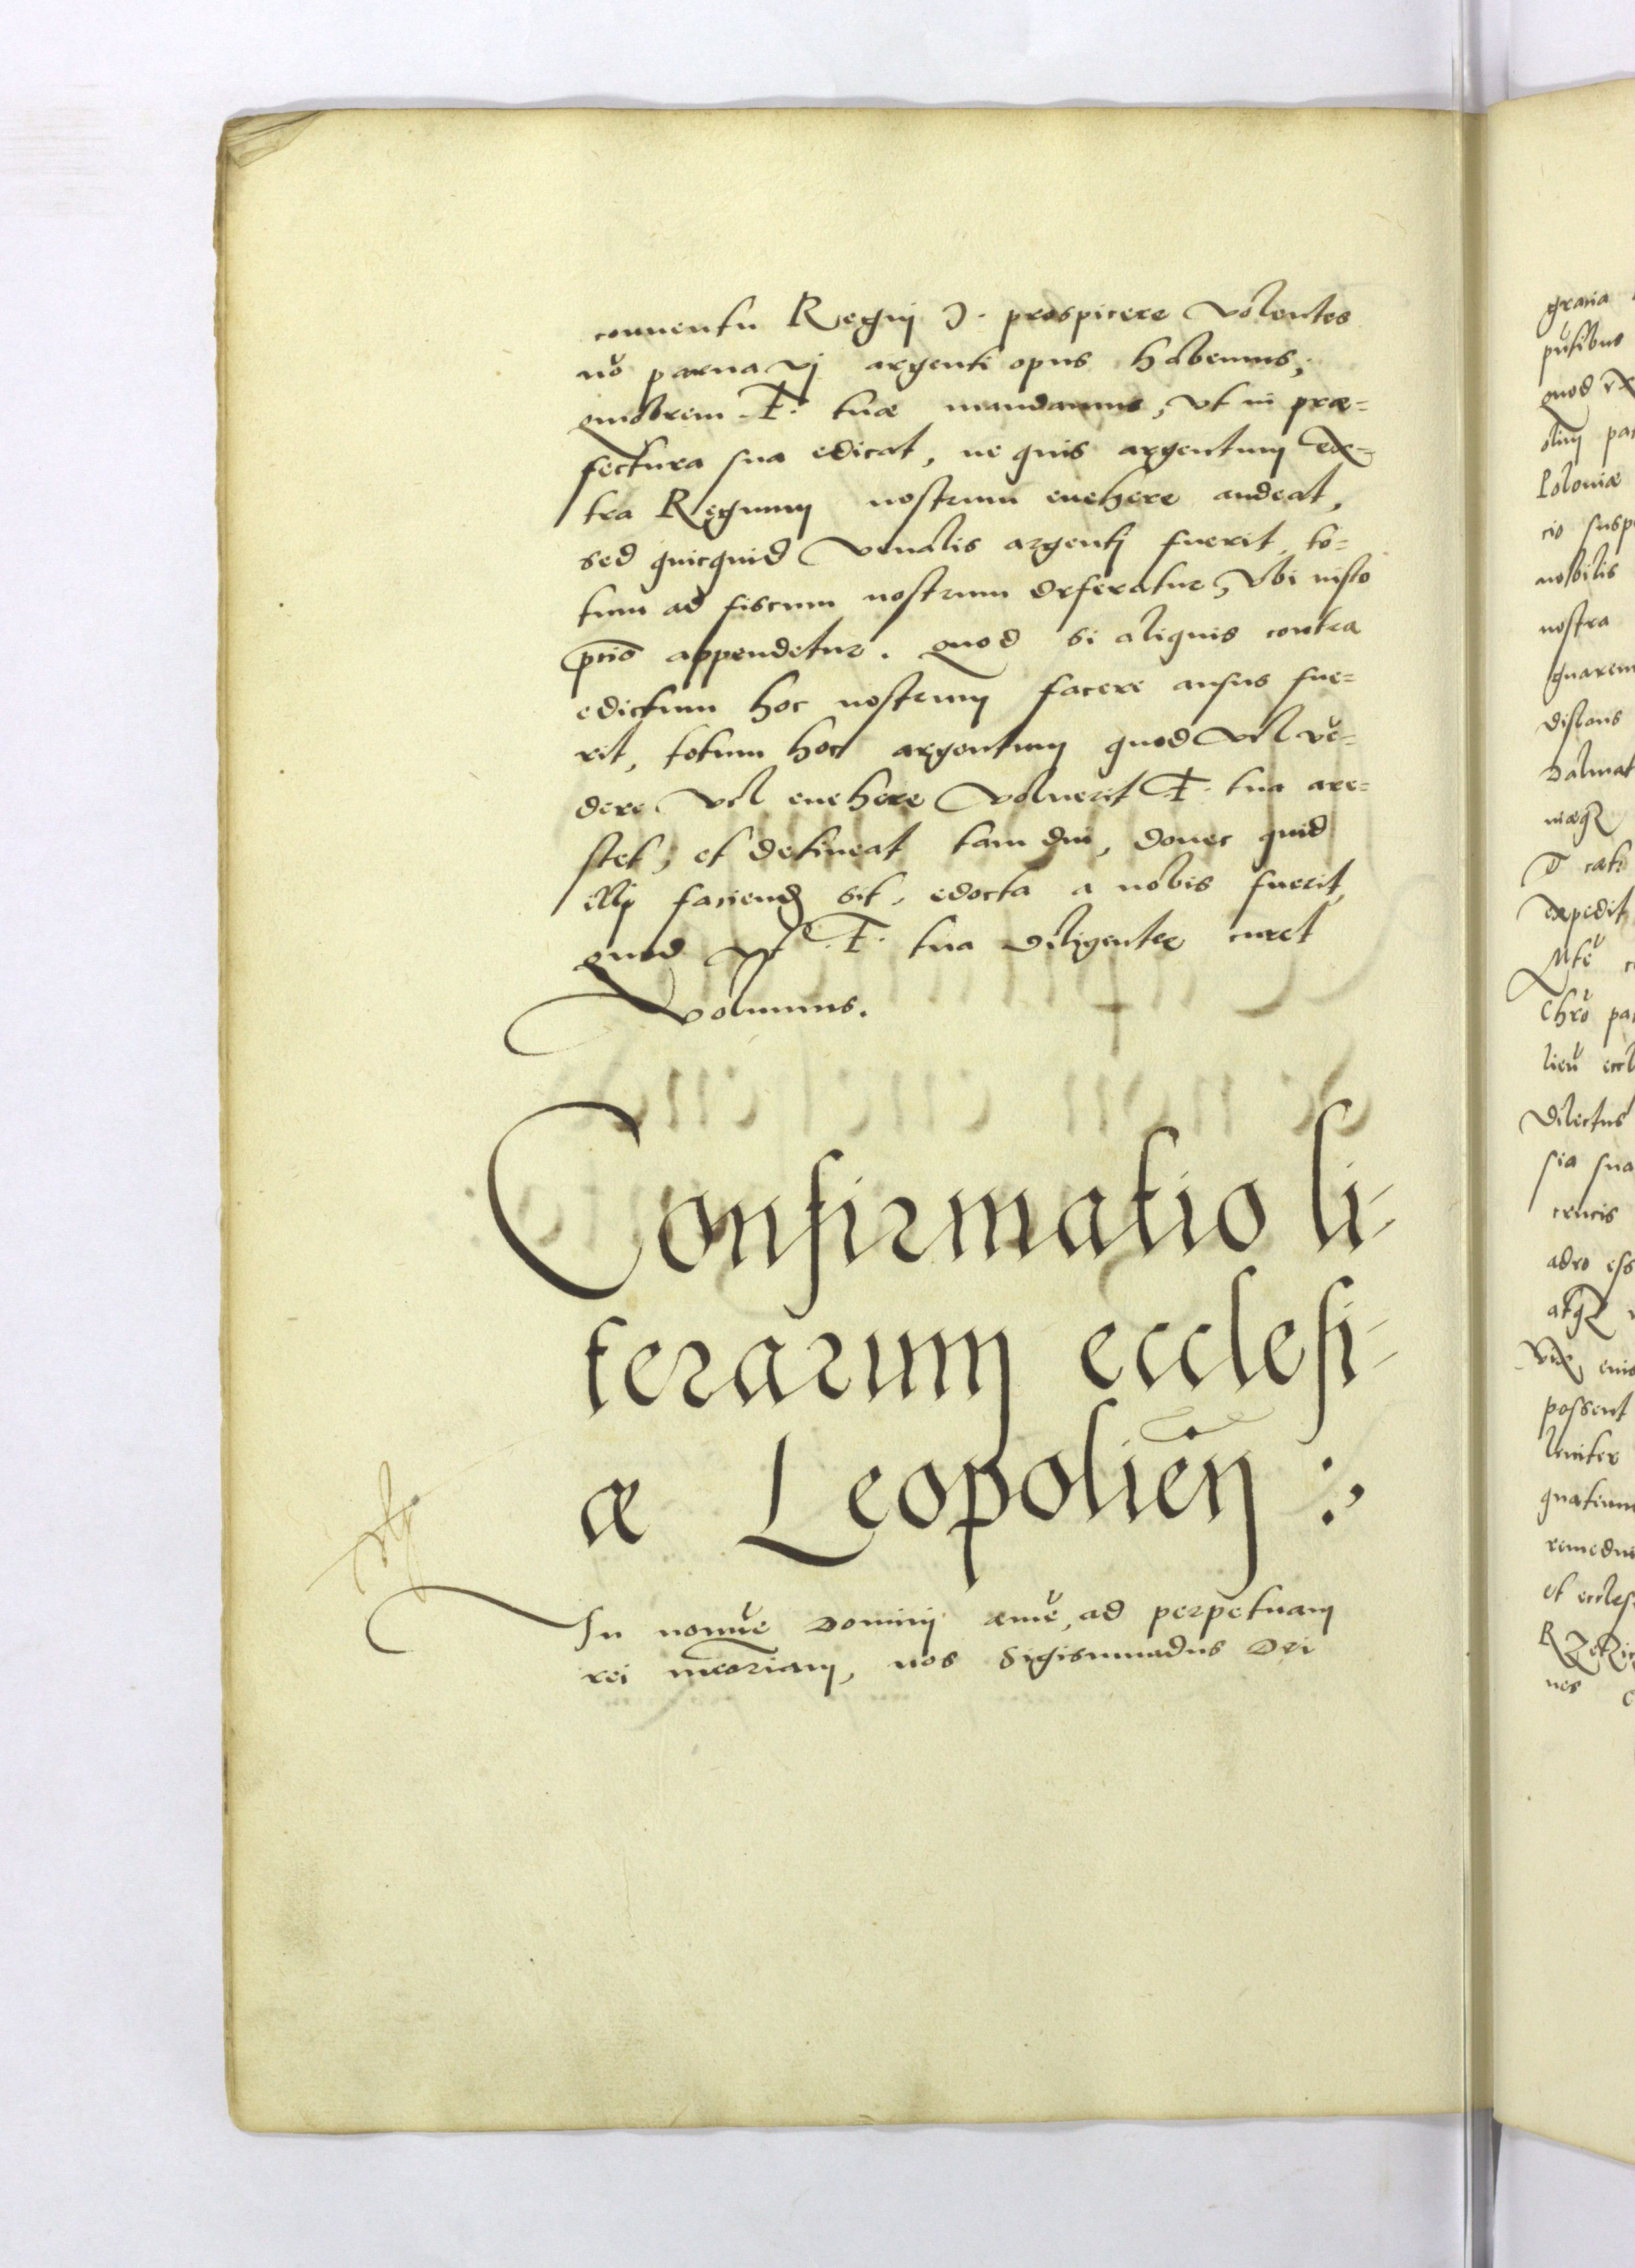 conuentu Regnj D. prospicere volentes
nõ parua vj argenti opus habemus,
quobrem F. tuæ mandamus, vt in præ=
fectura sua edicat, ne quis argentum ex=
tra Regnum nostrum euehere audeat,
sed quicquid venalis argentj fuerit, to=
tum ad fiscum nostrum deferatur, vbi iusto
pcio appendetur. quod si aliquis contra
edictum hoc nostrum facere ausus fue=
rit, totum hoc argentum quod vel vẽ=
dere vel euehere voluerit F. tua are=
stet, et detineat tam diu, donec quid
illj faciend sit, edocta a nobis fuerit,
quod vt F. tua diligenter curet
volumus.
Confirmatio li-
terarum ecclesi-
æ Leopolieñ :,
In nomĩe Dominj amẽ, ad perpetuam
rei mẽoriam, nos Sigismũdus Dei
gracia
nobilis
nostra
quarem
distans
Dalmat
expedit
dilectus
sia sua
crucis
possent
leniter
et eccles
Poloniæ
quod